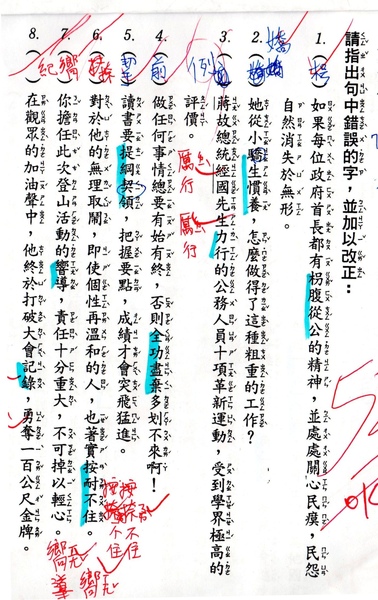 請指出句中錯誤的字，並加以改正：
1. （ ）如果每位政府首長都有枴腹從公的精神，並處處關心民瘼，民怨
自然消失於無形。
2. （嬌）她從小驕生慣養，怎麼做得了這種粗重的工作？
3. （例）蔣故總統經國先生力行的公務人員十項革新運動，受到學界極高的
評價。
厲行
勵行
4. （前）做任何事情總要有始有終，否則全功盡棄多划不來啊！
5. （挈）讀書要提綱契領，把握要點，成績才會突飛猛進。
6. （捺）對於他的無理取鬧，即使個性再溫和的人，也著實按耐不住。
按捺不住
按捺不住
7. （嚮）你擔任此次登山活動的響導，責任十分重大，不可掉以輕心。
嚮導
嚮
8. （紀）在觀眾的加油聲中，他終於打破大會記錄，勇奪一百公尺金牌。
OK